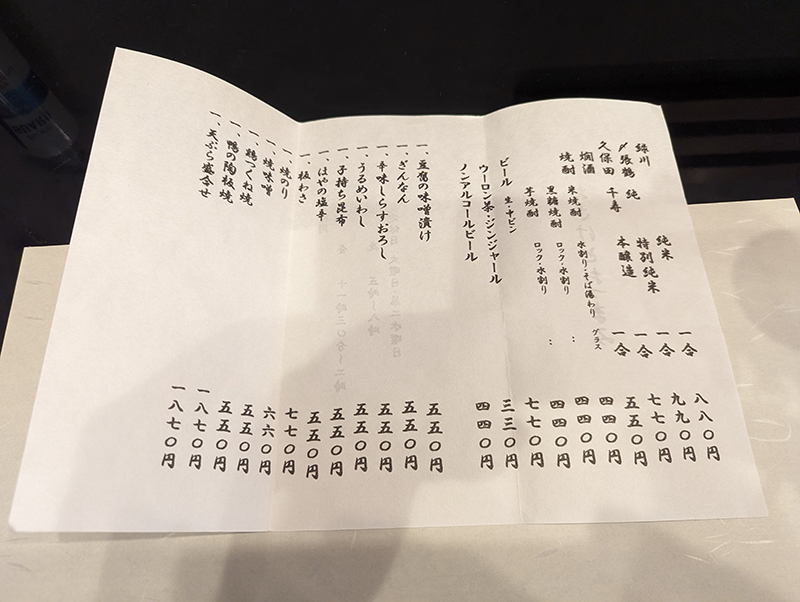 緑川 純米 一合 八八〇円
〆張鶴 純 特別純米 一合 九九〇円
久保田 千寿 本醸造 一合 七七〇円
燗酒 一合 五五〇円
焼酎 米焼酎 水割り・そば湯わり グラス 四四〇円
黒糖焼酎 ロック・水割り : 四四〇円
芋焼酎 ロック・水割り : 四四〇円
ビール 生・中ビン 七七〇円
ウーロン茶・ジンジャール 三三〇円
ノンアルコールビール 四四〇円
一、豆腐の味噌漬け 五五〇円
一、ぎんなん 五五〇円
一、辛味しらすおろし 五五〇円
一、うるめいわし 五五〇円
一、子持ち昆布 五五〇円
一、ほやの塩辛 五五〇円
一、板わさ 七七〇円
一、焼のり 六六〇円
一、焼味噌 五五〇円
一、鶏つくね焼 五五〇円
一、鴨の陶板焼 一八七〇円
一、天ぷら盛合せ 一八七〇円